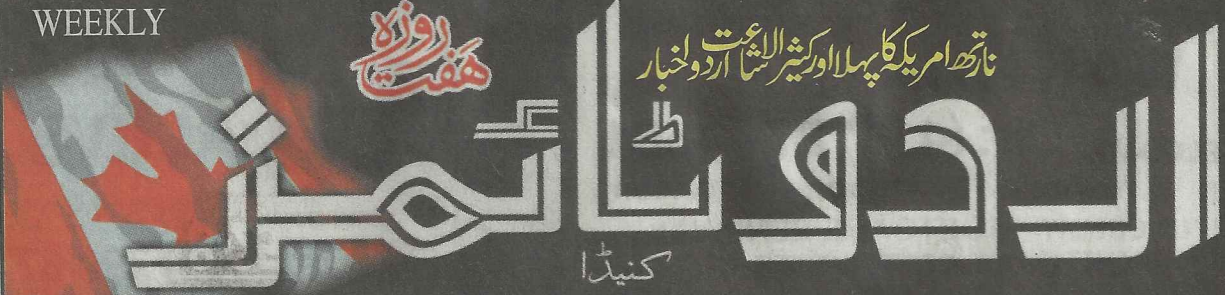 WEEKLY
ہفت روزہ
نارتھ امریکہ کا پہلا اور کثیر الاشاعت اردو اخبار
اردو ٹائمز
کنیڈا